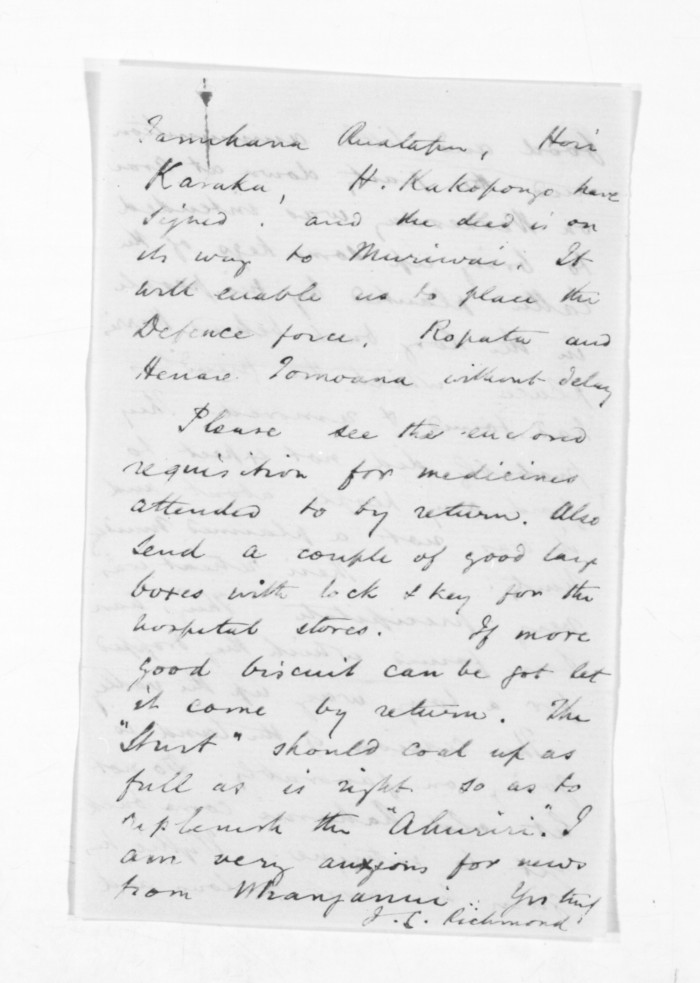 Tamihana Ruatapu, Hori
Karaka, H. Kakopongo have
signed. and the deed is on
its way to Muriwai. It
will enable us to place the
Defence force, Ropata and
Henare Tomoana without delay
Please see the enclosed
requisition for medicines
attended to by return. Also
send a couple of good large
boxes with lock & key for the
hospital stores. If more
good biscuit can be got let
it come by return. The
"Sturt" should coal up as
full as is right so as to
replenish the "Ahuriri". I
am very anxious for news
from Whanganui. Yrs truly
J. C. Richmond